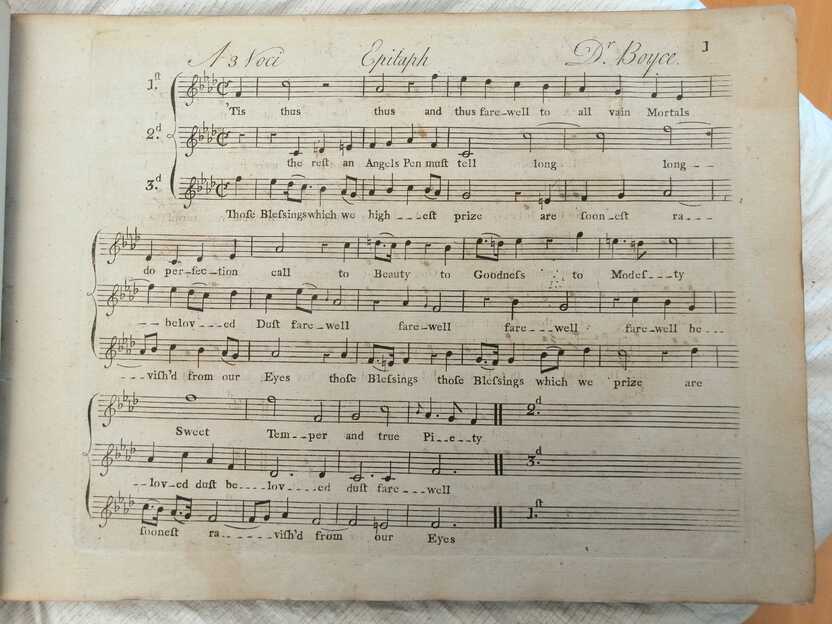 A 3 Voci Epitaph Dr. Boyce. 1
1.st
'Tis thus thus and thus fare-well to all vain Mortals
2.d
the reſt an Angels Pen muſt tell long long - -
3.d
Thoſe Bleſsings which we high - - - eſt prize are ſoon-eſt ra - -
do per-fec-tion call to Beauty to Goodneſs to Modeſ - - - ty
- - belov - - - ed Duſt fare - well fare - well fare - - - well fare - well be - - -
- - - viſh'd from our Eyes thoſe Bleſsings thoſe Bleſsings which we prize are
Sweet Tem - - per and true Pi - - e - - ty 2.d
- - lov - - ed duſt be - - - - lov - - - - ed duſt fare - - - well 3.d
ſooneſt ra - - - - - viſh'd from our Eyes 1.ſt